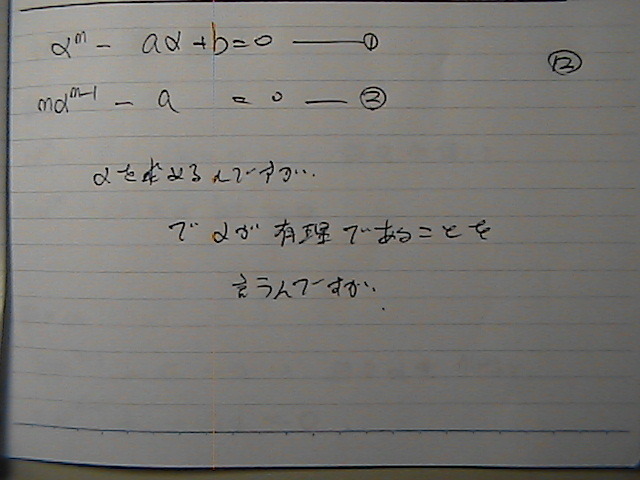 α^m - aα + b = 0 ―― ①
⑫
mα^{m-1} - a = 0 ― ②
αを求めるんですが..
で αが 有理であることを
言うんですが.